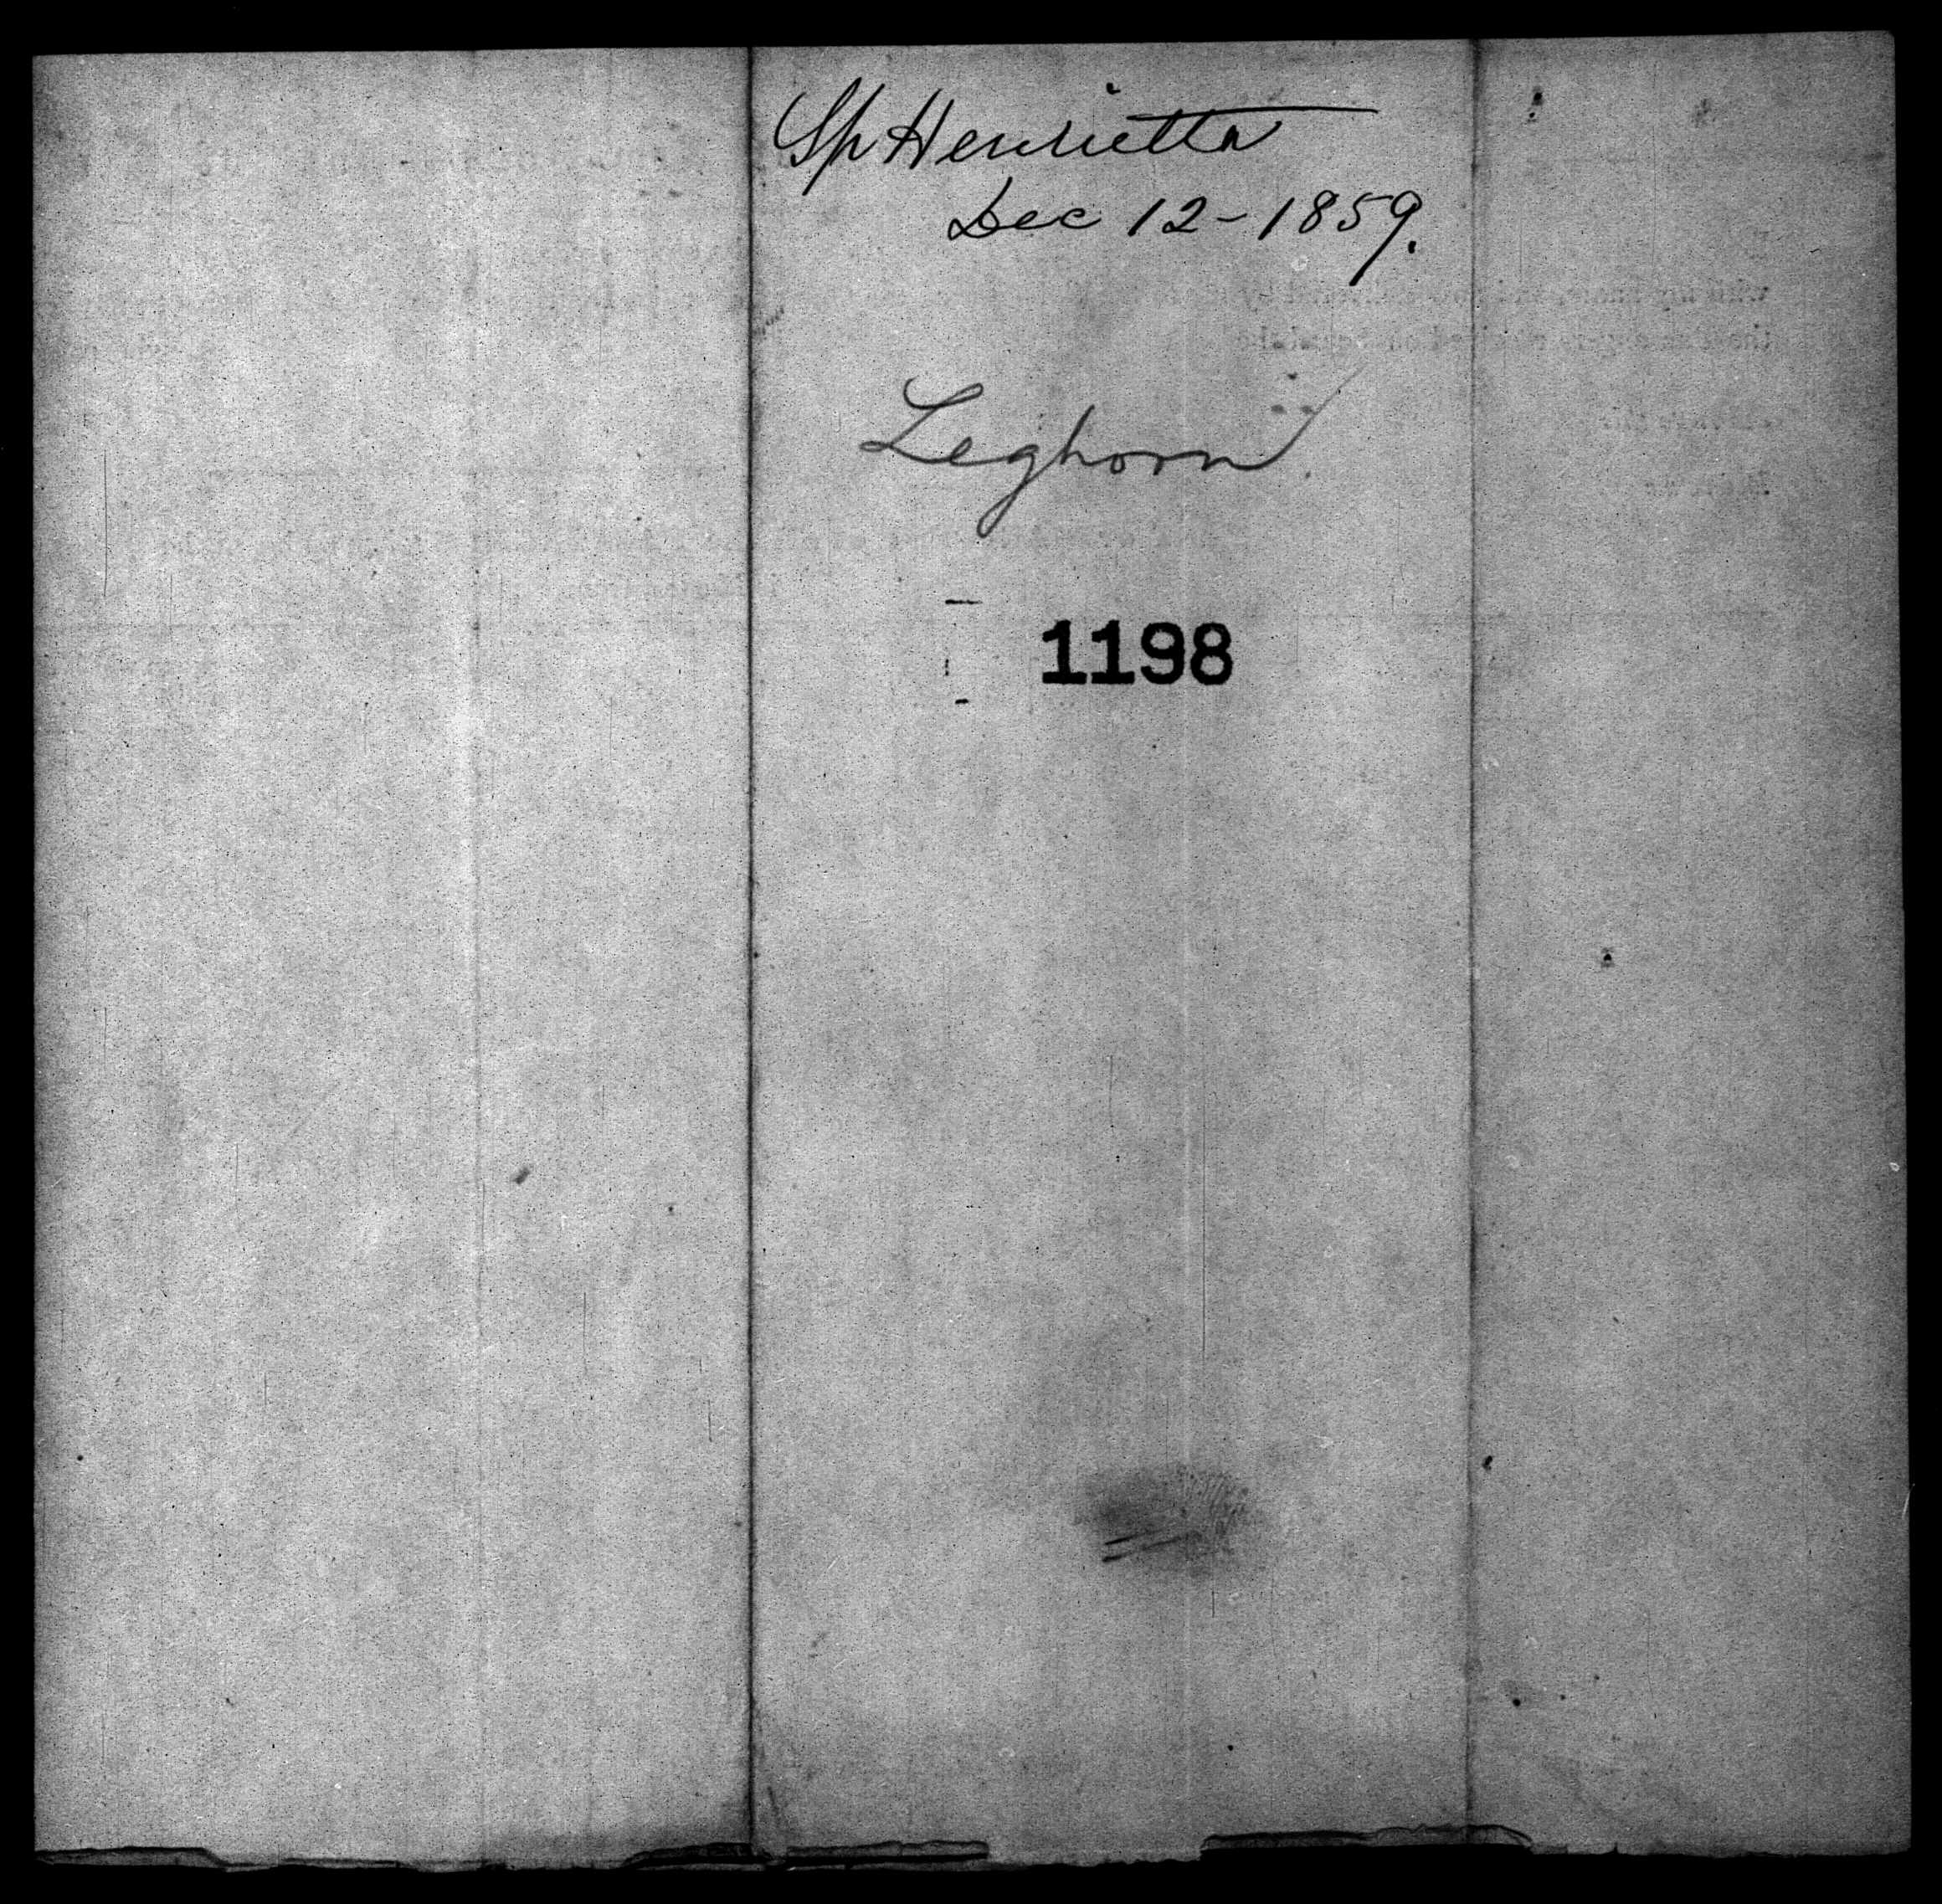 Sp Henrietta
Dec 12-1859.
Leghorn
1198